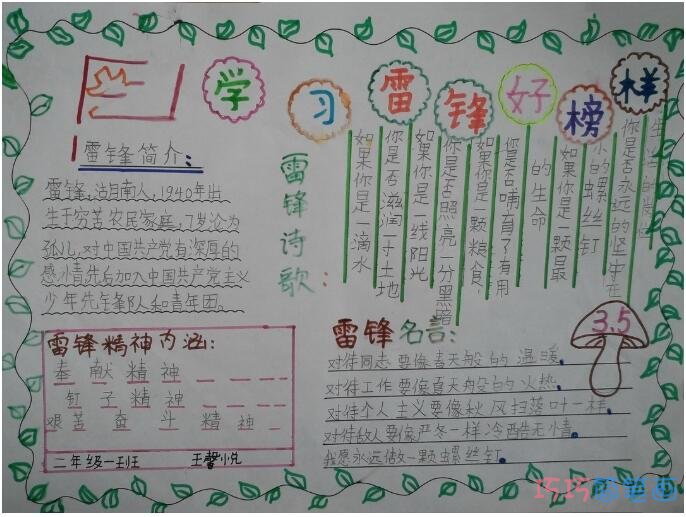 学习雷锋好榜样
雷锋简介:
雷锋,沽月南人,1940年出
生于穷苦农民家庭,7岁沦为
孤儿,对中国共产党有深厚的
感情先后加入中国共产党主义
少年先锋队和青年团。
雷锋诗歌:
如果你是一滴水
你是否滋润一寸土地
如果你是一线阳光
你是否照亮一分黑暗
如果你是一颗粮食
你是否哺育了有用
的生命
如果你是一颗最
小的螺丝钉
你是否永远的坚守在
生活的岗位
雷锋精神内涵:
奉献精神
钉子精神
艰苦奋斗精神
二年级一班班 王馨悦
雷锋名言:
3.5
对待同志要像春天般的温暖
对待工作要像夏天般的火热
对待个人主义要像秋风扫落叶一样
对待敌人要像严冬一样冷酷无情
我愿永远做一颗螺丝钉
巧巧简笔画